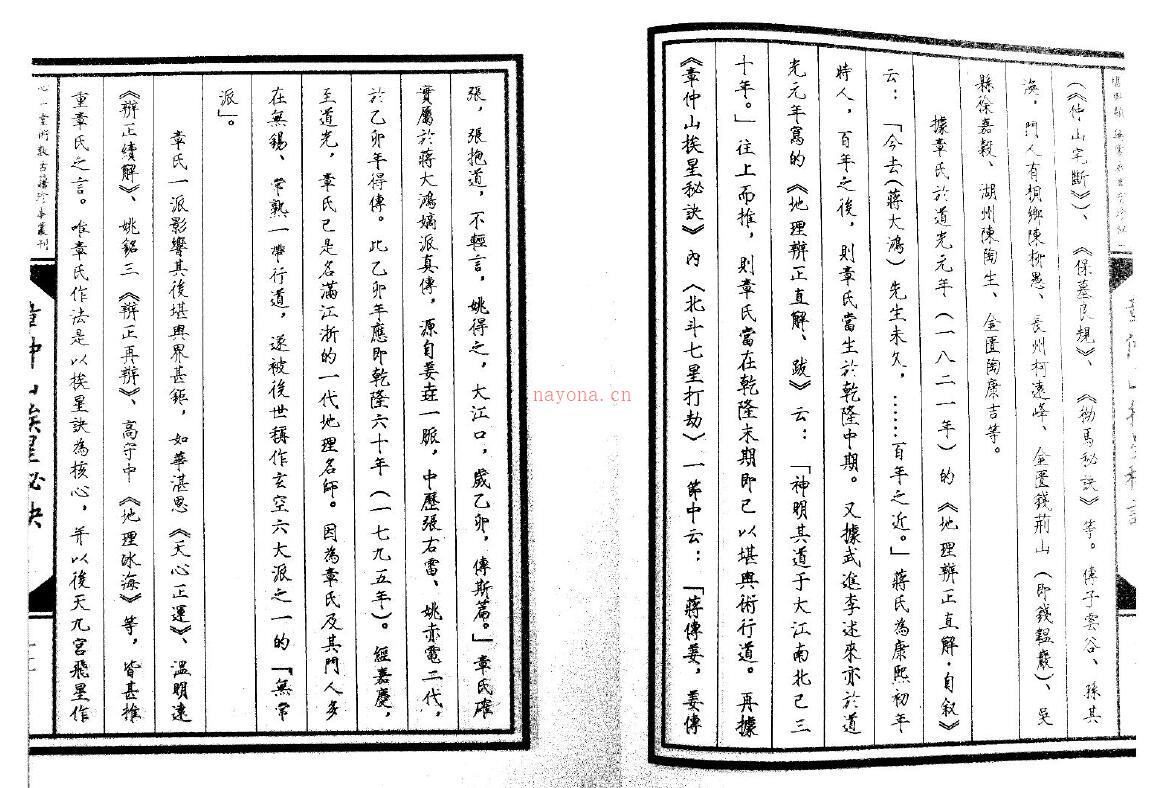 （《仲山宅斷》）、《保墓良規》、《幼馬秘訣》等。傳子雲谷、孫其
渙，門人有桐鄉陳柳愚、長州柯遠峰、金匱錢荊山（即錢韞巖）、吳
縣徐嘉穀、湖州陳陶生、金匱陶康吉等。
據章氏於道光元年（一八二一年）的《地理辨正直解·自叙》
云：「今去（蔣大鴻）先生未久，……百年之近。」蔣氏為康熙初年
時人，百年之後，則章氏當生於乾隆中期。又據武進李述來亦於道
光元年寫的《地理辨正直解、跋》云：「神明其道于大江南北已三
十年。」往上而推，則章氏當在乾隆末期即已以堪輿術行道。再據
《章仲山挨星秘訣》內〈北斗七星打劫〉一節中云：「蔣傳姜，姜傳
張，張抱道，不輕言，姚得之，大江口，歲乙卯，傳斯篇。」章氏確
實屬於蔣大鴻嫡派真傳，源自姜垚一脈，中歷張右雷、姚赤電二代，
於乙卯年得傳。此乙卯年應即乾隆六十年（一七九五年）。經嘉慶，
至道光，章氏已是名滿江浙的一代地理名師。因為章氏及其門人多
在無錫、常熟一帶行道，遂被後世稱作玄空六大派之一的「無常
派」。
章氏一派影響其後堪輿界甚鉅，如華湛恩《天心正運》、溫明遠
《辨正續解》、姚銘三《辨正再辨》、高守中《地理冰海》等，皆甚推
重章氏之言。唯章氏作法是以挨星訣為核心，并以後天九宮飛星作
章仲山挨星秘訣
心一堂術數古籍珍本叢刊
nayona.cn